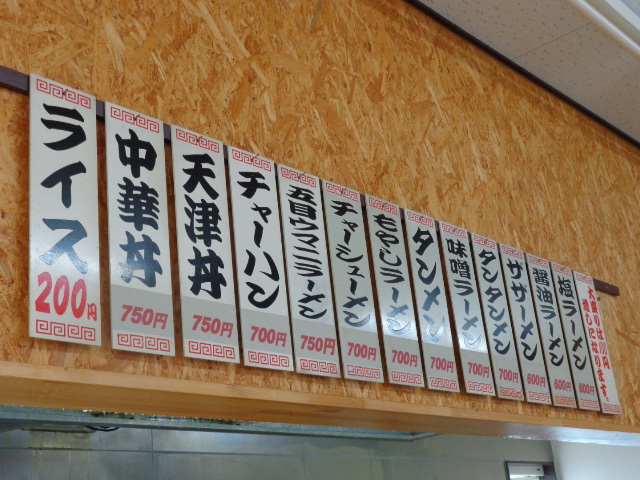 塩ラーメン
600円
醤油ラーメン
600円
600円
タンタンメン
700円
味噌ラーメン
700円
タンメン
700円
もやしラーメン
700円
チャーシューメン
700円
五目ウマニラーメン
750円
チャーハン
700円
天津丼
750円
中華丼
750円
ライス
200円